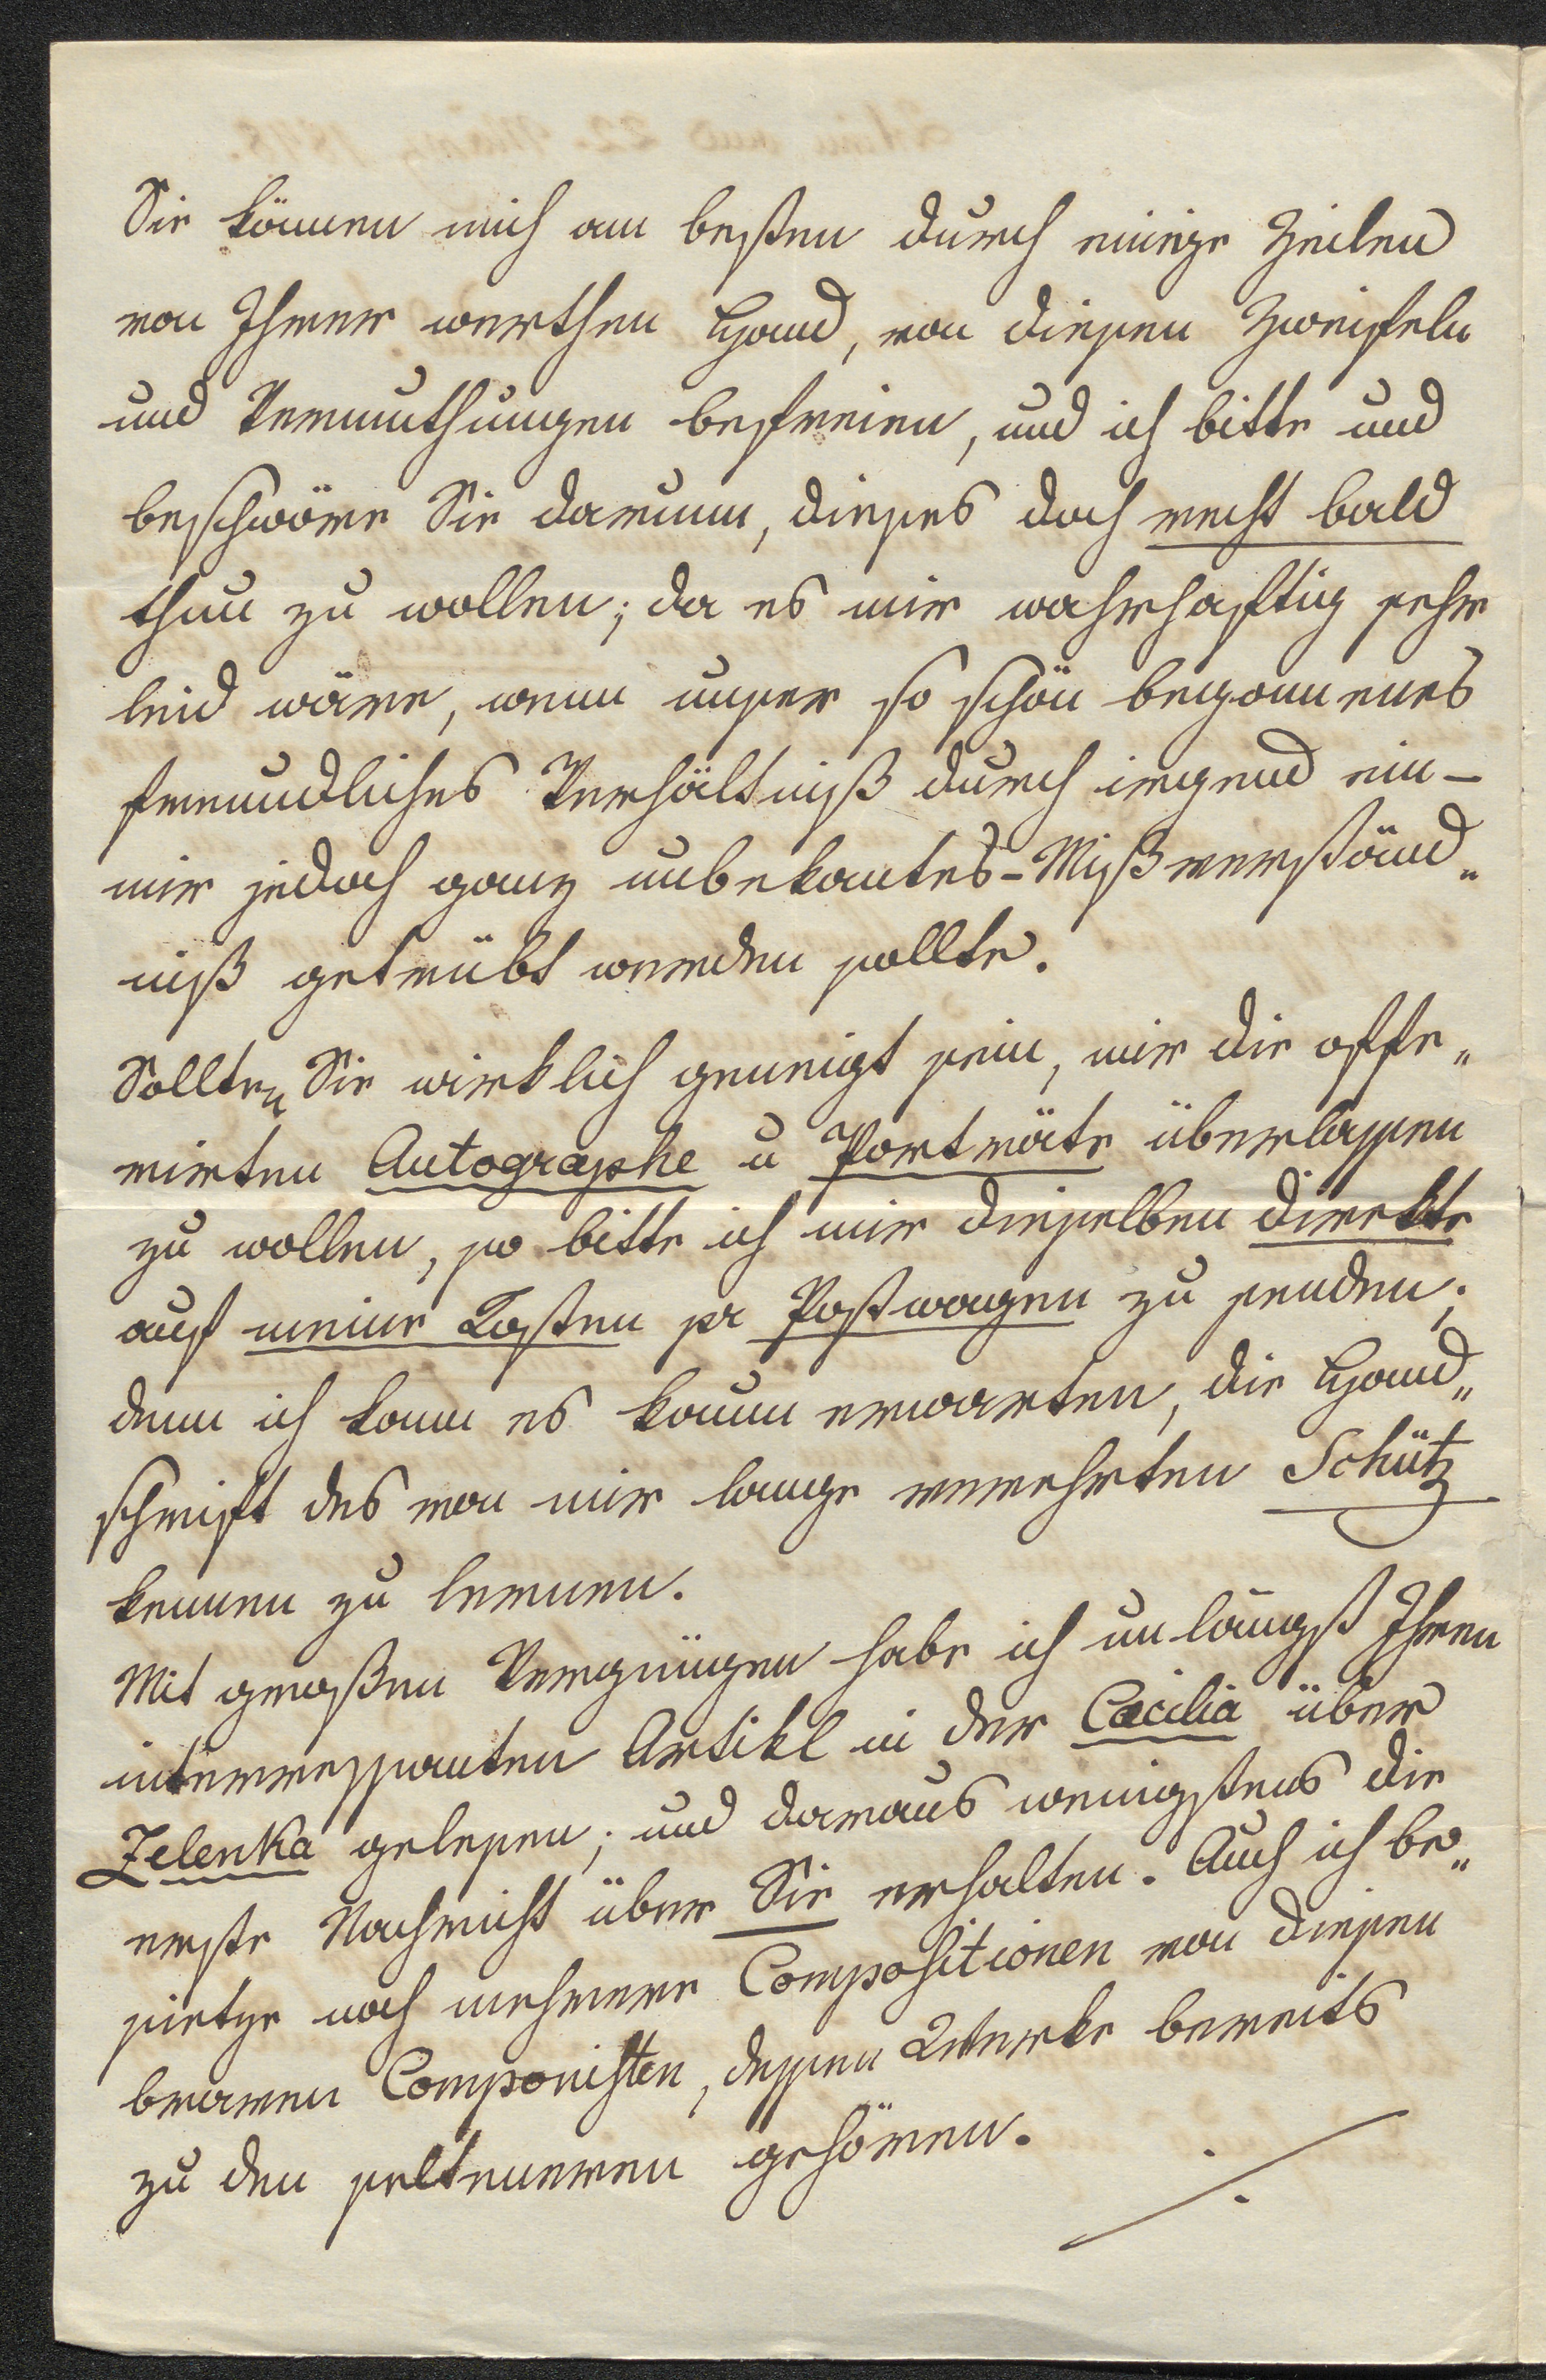 Sie können mich am besten durch einige Zeilen
von Ihrer werthen Hand, von diesen Zweifeln
und Vermuthungen befreien, und ich bitte und
beschwöre Sie darumm, dieses doch recht bald
thun zu wollen; da es mir wahrhaftig sehr
leid wäre, wenn unser so schön begonnenes
freundliches Verhältniß durch irgend ein –
mir jedoch ganz unbekantes – Mißverständ„
niß getrübt werden sollte.
Sollten Sie wirklich geneigt sein, mir die offe„
rirten Autographe u Porträte überlassen
zu wollen, so bitte ich mir dieselben direkte
auf meine Kosten pr Postwagen zu senden;
denn ich kann es kaum erwarten, die Hand„
schrift des von mir lange verehrten Schütz
kennen zu lernen.
Mit großen Vergnügen habe ich unlängst Ihren
interressanten Artikl in der Cæcilia über
Zelenka gelesen; und daraus wenigstens die
erste Nachricht über Sie erhalten. Auch ich be„
sietze noch mehrere Compositionen von diesen
braven Componisten, dessen Werke bereits
zu den seltneren gehören.
./.